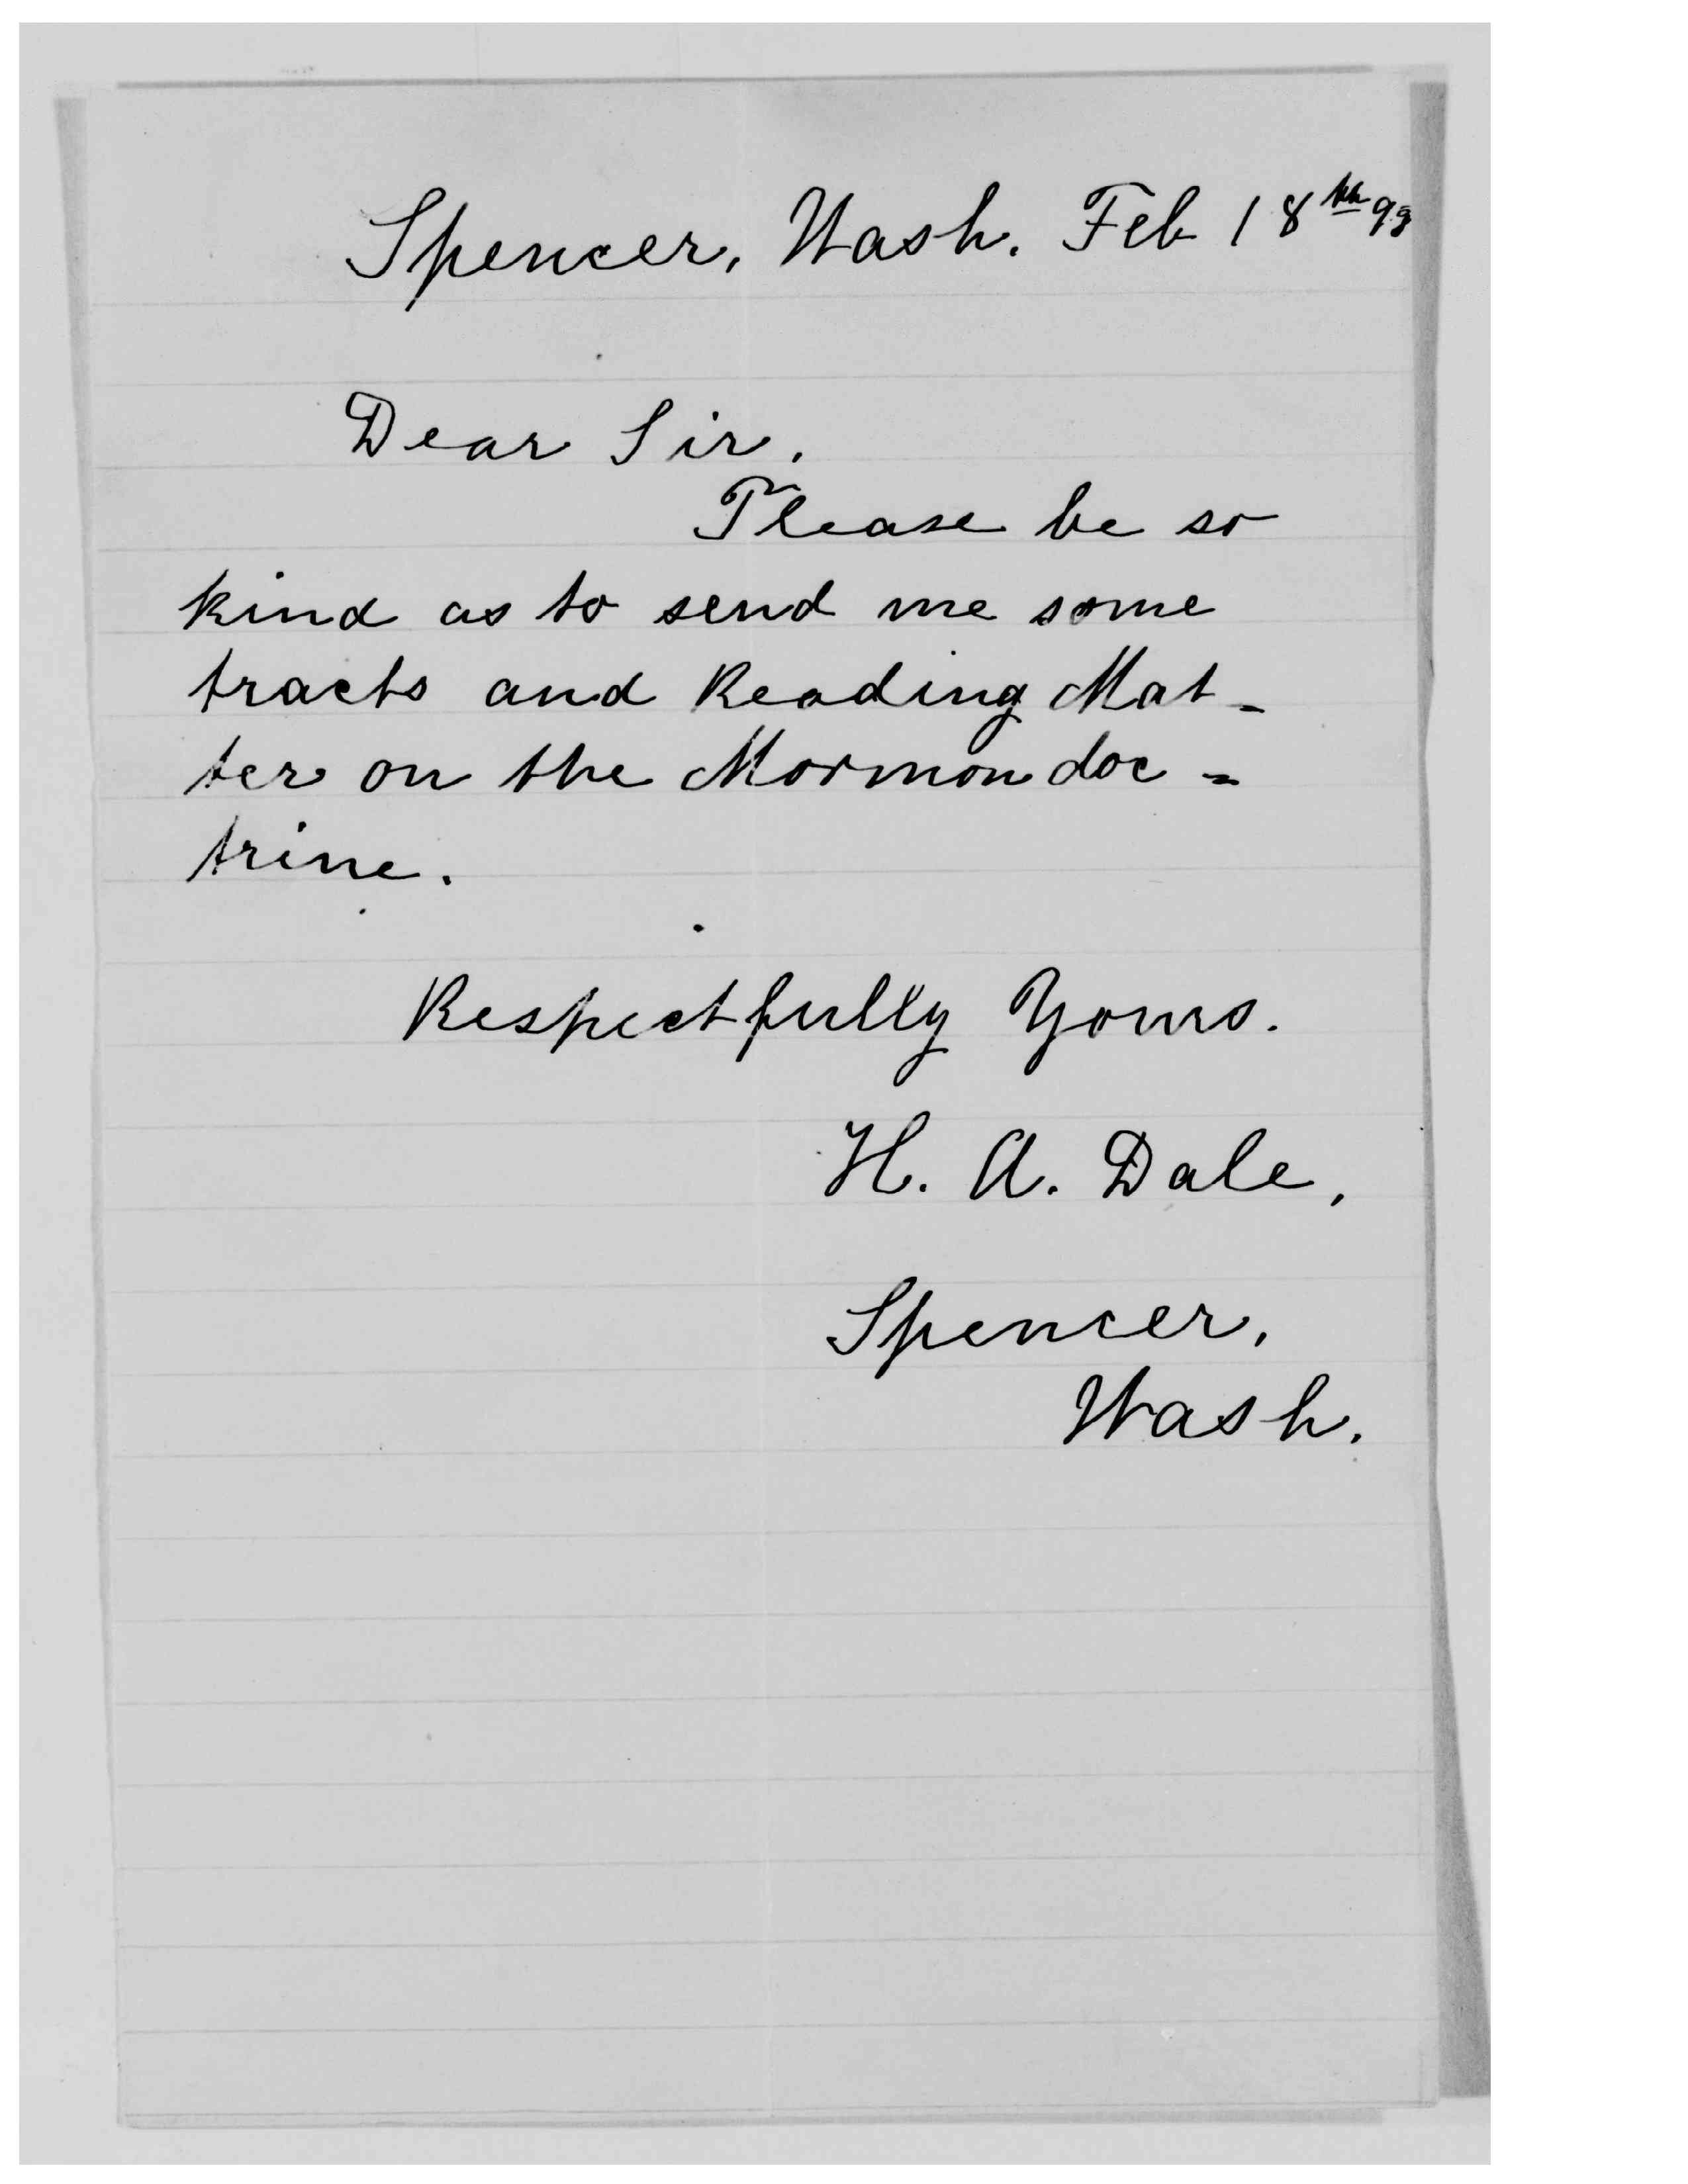 Spencer, Wash. Feb 18th 99
Dear Sir,
Please be so
kind as to send me some
tracts and Reading Mat-
ter on the Mormon doc=
trine.
Respectfully Yours.
H. A. Dale,
Spencer,
Wash.